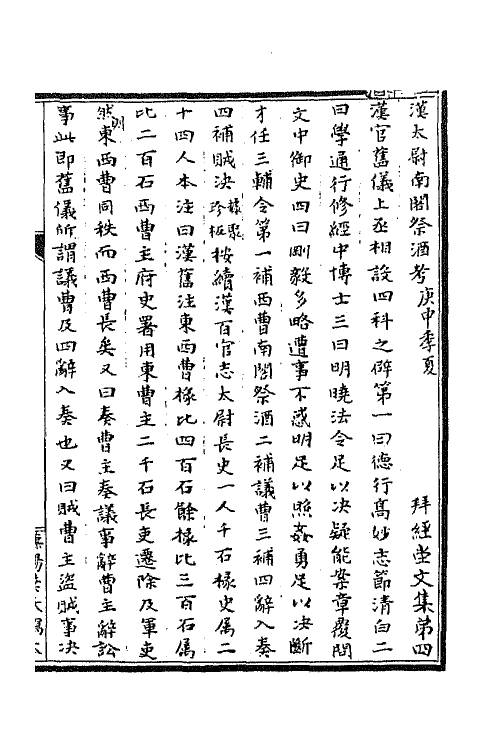 漢太尉南閣祭酒考庚申季夏 拜經堂文集第四
漢官舊儀上丞相設四科之辟第一曰德行高妙志節清白二
曰學通行修經中博士三曰明曉法令足以决疑能案章覆問
文中御史四曰剛毅多略遭事不惑明足以照姦勇足以決斷
才任三輔令第一補西曹南閣祭酒二補議曹三補四辭入奏
四補賊决據聚珍板按續漢百官志太尉長史一人千石掾史属二
十四人本注曰漢舊注東西曹掾比四百石餘掾比三百石属
比二百石西曹主府史署用東曹主二千石長吏遷除及軍吏
然則東西曹同秩而西曹長矣又曰奏曹主奏議事辭曹主辭訟
事此即舊儀所謂議曹及四辭入奏也又曰賊曹主盜賊事决